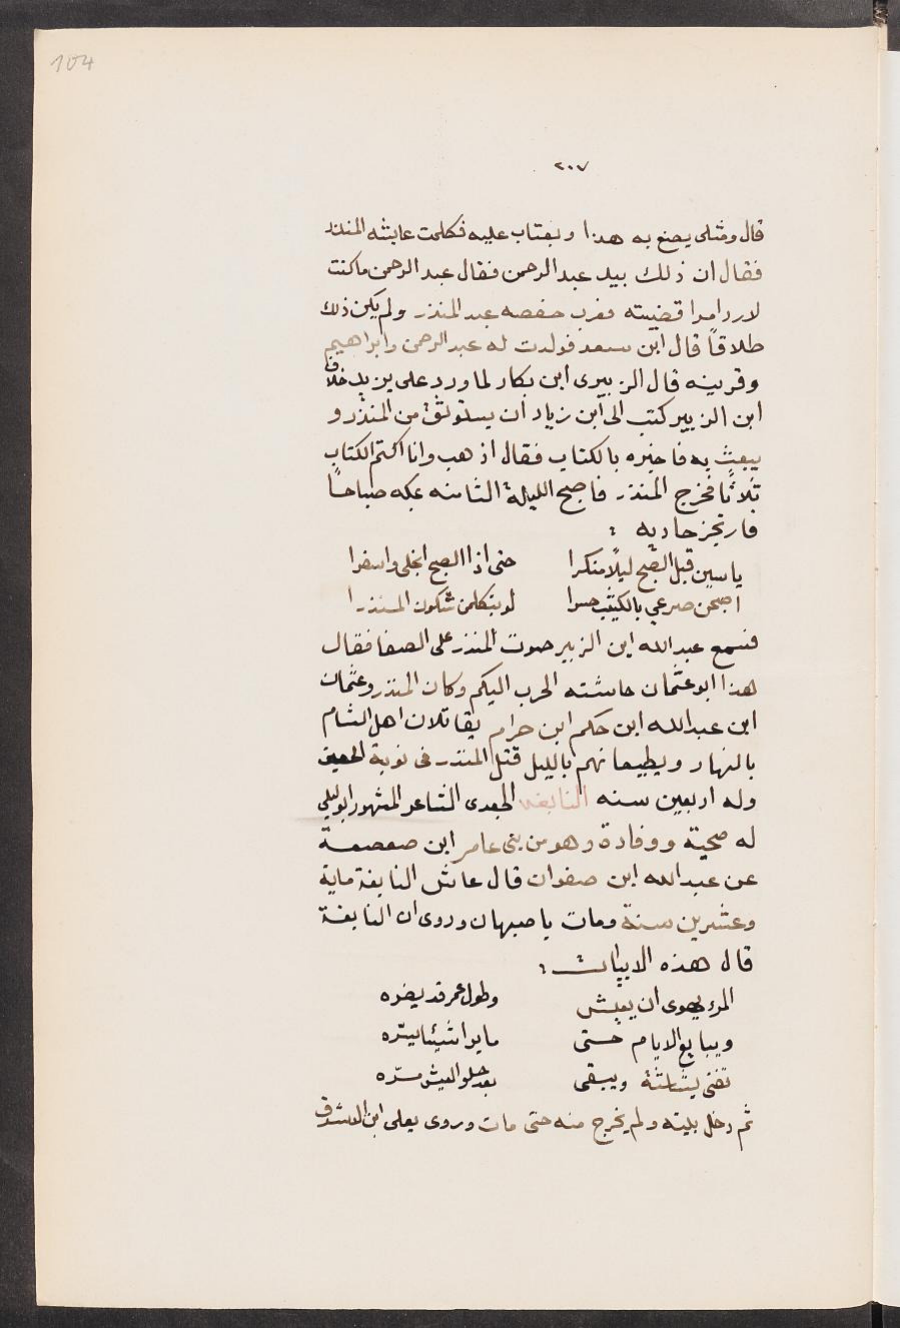 104
٢٠٧
قال ومثلى يصنع به هذا ويفتاب عليه فكلمت عايشه المنذر
فقال ان ذلك بيد عبد الرحمن فقال عبد الرحمن ماكنت
لارد امرا قضيته فقرب حفصه عبد المنذر ولم يكن ذلك
طلاقاً قال ابن سعد فولدت له عبد الرحمن وابراهيم
وقرينه قال الزبيرى ابن بكار لما ورد على يزيد خلاف
ابن الزبير كتب الى ابن زياد ان يستوثق من المنذر و
يبعث به فاخبره بالكتاب فقال اذهب وانا اكتم الكتاب
ثلاثا فخرج المنذر فاصبح الليلة الثامنه بمكه صباحاً
فارتجز حاديه :
ياسين قبل الصبح ليلاً منكرا حتى اذا الصبح انجلى واسفرا
اصبحن صرعى بالكثيب حسرا لو يتكلمن شكون المنذرا
فسمع عبد الله ابن الزبير صوت المنذر على الصفا فقال
هذا ابو عثمان حاشته الحرب اليكم وكان المنذر وعثمان
ابن عبد الله ابن حكم ابن حرام يقاتلان اهل الشام
بالنهار ويطيعانهم بالليل قتل المنذر فى نوبة الحصين
وله اربعين سنه النابغه الجعدى الشاعر المشهور ابو ليلى
له صحبة ووفادة وهو من بنى عامر ابن صعصعة
عن عبد الله ابن صفوان قال عاش النابغة ماية
وعشرين سنة ومات باصبهان وروى ان النابغة
قال هذه الابيات :
المرء يهوى ان يعيش وطول عمر قد يضره
ويتابع الايام حتى مايرا شيئا يسرّه
تفنى بشاشتة ويبقى بعد حلو العيش مرّه
ثم دخل بيته ولم يخرج منه حتى مات وروى يعلى ابن